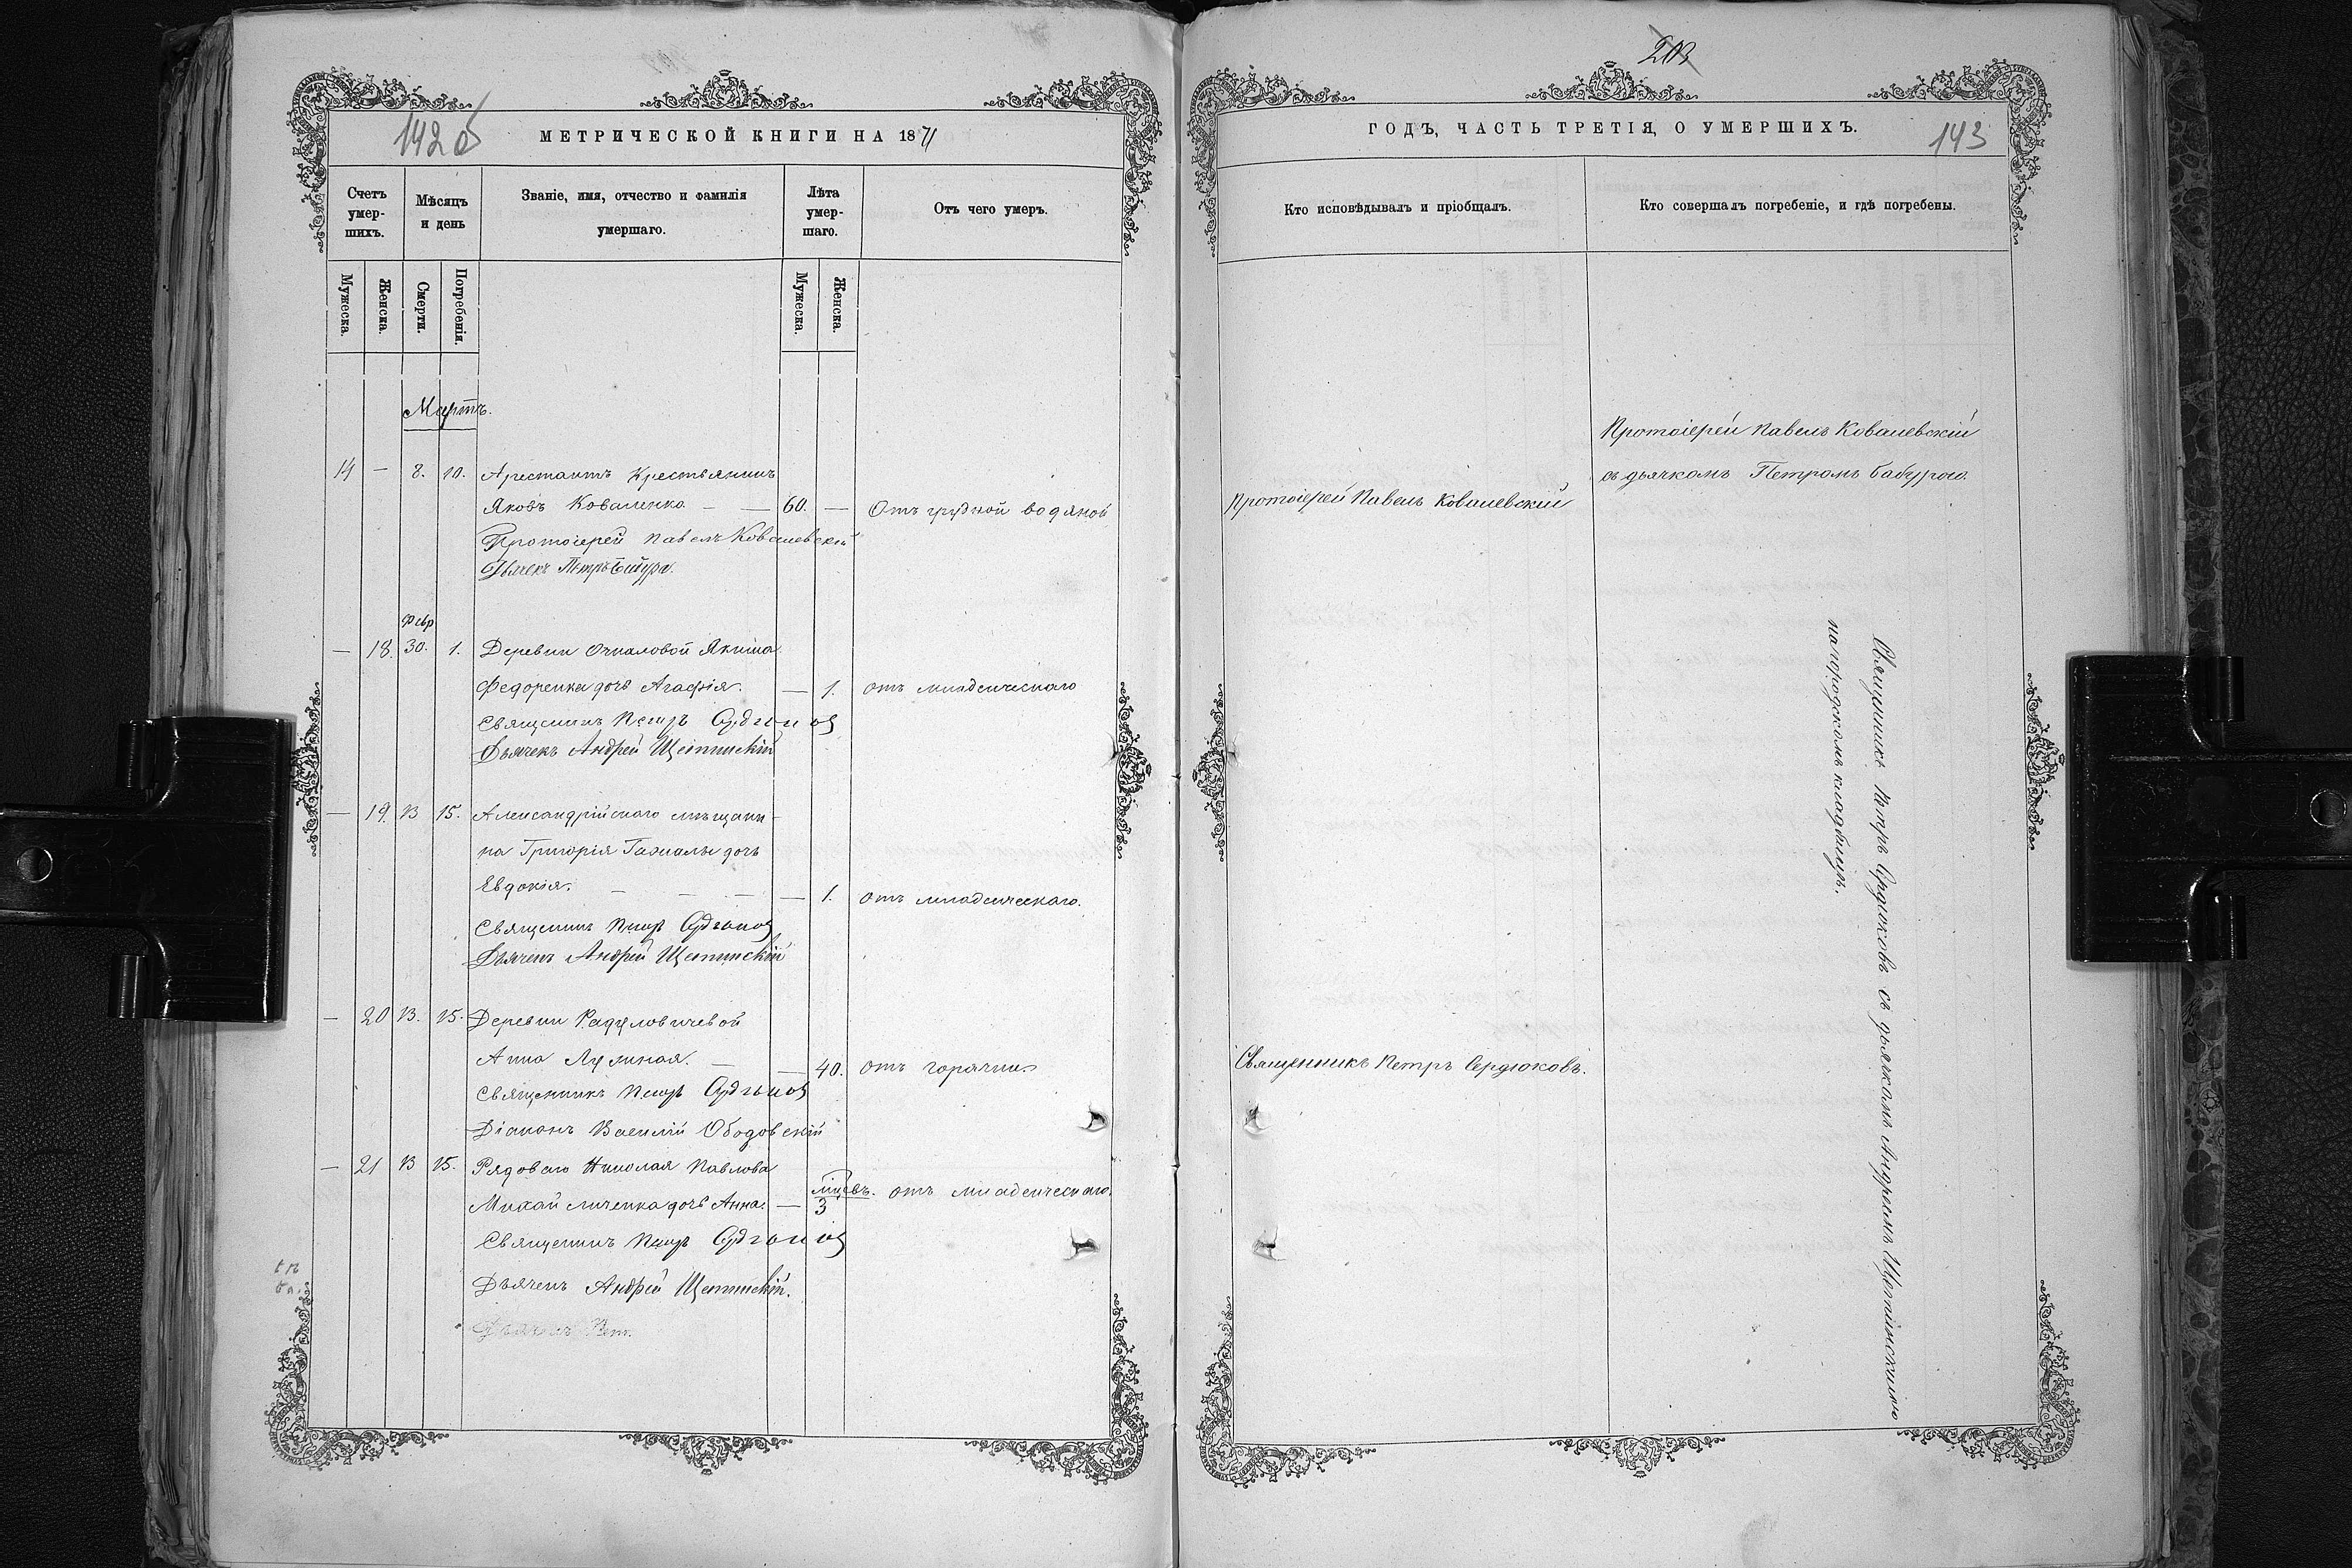 142об
МЕТРИЧЕСКОЙ КНИГИ НА 1871
Счетъ умер-шихъ.
Мѣсяцъ и день
Званіе, имя, отчество и фамилія умершаго.
Лѣта умер-шаго.
Отъ чего умеръ.
Мужеска.
Женска.
Смерти.
Погребенія.
Мужеска.
Женска.
Мартъ.
14 — 8. 10. Арестантъ Крестьянинъ
Яковъ Коваленко — — 60. — Отъ грудной водяной
Протоіерей Павелъ Ковалевскій
Дьячекъ Петръ Бабура.
Февр
— 18. 30. 1. Деревни Якима
Федоренка дочь Агафія. — 1. отъ младенческаго
Священникъ Петръ Сердюковъ
Дьячекъ Андрей Щепинскій
— 19. 13 15. Александрійскаго мѣщани-
на Григорія дочь
Евдокія. — — — — 1. отъ младенческаго.
Священникъ Петръ Сердюковъ
Дьячекъ Андрей Щепинскій
— 20 13. 15. Деревни Радуловичевой
Анна — — 40. отъ горячки
Священникъ Петръ Сердюковъ
Діаконъ Василій Ободовскій
— 21 13 15. Рядоваго Николая Павлова
Михайличенка дочь Анна. — мѣсяцевъ. 3 отъ младенческаго.
Священникъ Петръ Сердюковъ
Дьячекъ Андрей Щепинскій.
Дьячекъ Пет.
203
ГОДЪ, ЧАСТЬ ТРЕТІЯ, О УМЕРШИХЪ.
143
Кто исповѣдывалъ и пріобщалъ.
Кто совершалъ погребеніе, и гдѣ погребены.
Протоіерей Павелъ Ковалевскій
съ дьячкомъ Петромъ Бабурою.
Протоіерей Павелъ Ковалевскій
Священникъ Петръ Сердюковъ съ дьячкомъ Андреемъ Щепинскимъ
на городскомъ кладбищѣ.
Священникъ Петръ Сердюковъ.